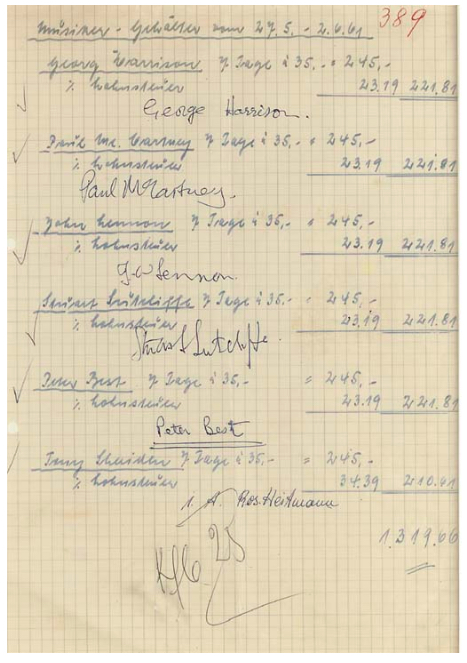 389
Musiker - Gehälter vom 27.5. - 2.6.61
Georg Harrison 7 Tage à 35,- = 245,-
% Lohnsteuer 23.19 221.81
George Harrison.
Paul Mc. Cartney 7 Tage à 35,- = 245,-
% Lohnsteuer 23.19 221.81
Paul McCartney.
John Lennon 7 Tage à 35,- = 245,-
% Lohnsteuer 23.19 221.81
J.W Lennon.
Stuart Sutcliffe 7 Tage à 35,- = 245,-
% Lohnsteuer 23.19 221.81
Stuart Sutcliffe.
Peter Best 7 Tage à 35,- = 245,-
% Lohnsteuer 23.19 221.81
Peter Best
Tony 7 Tage à 35,- = 245,-
% Lohnsteuer 34.39 210.61
i. A. Ros. Heitmann
1.319.66
25